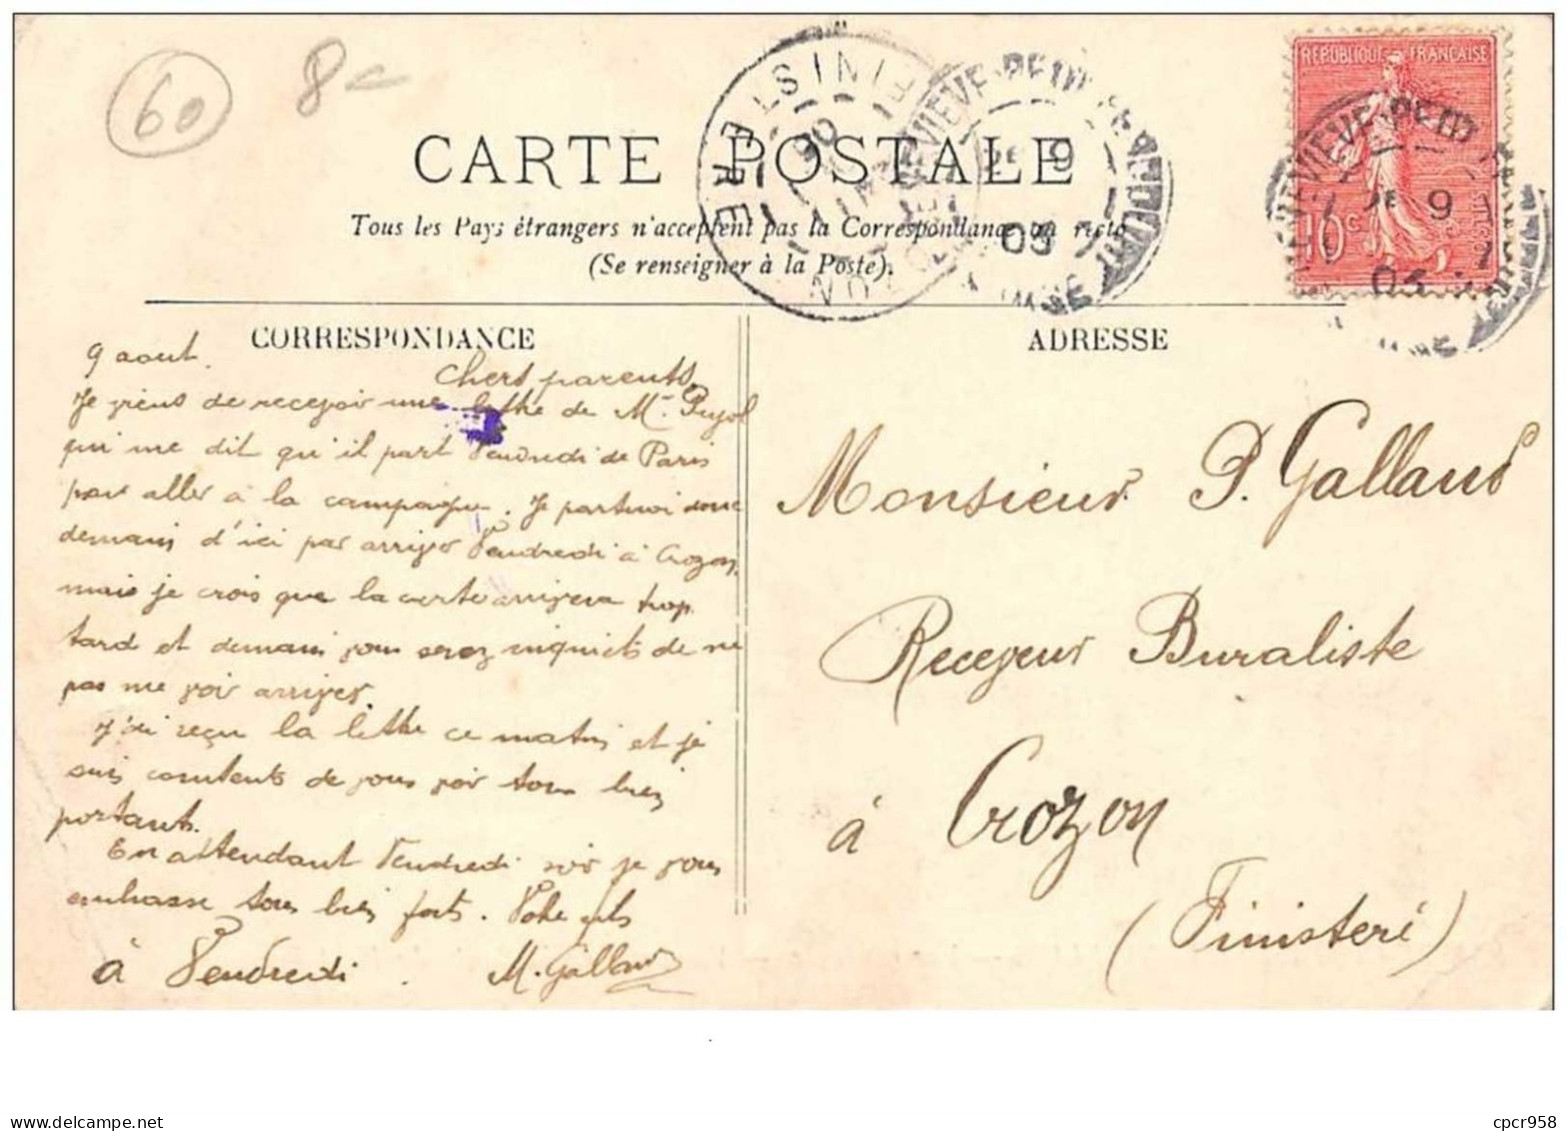 60
8c
RÉPUBLIQUE FRANÇAISE
10c
CARTE POSTALE
Tous les Pays étrangers n'acceptent pas la Correspondance au recto
(Se renseigner à la Poste).
CROZON FINISTERE
GENEVIEVE-PETIT
9
05
CORRESPONDANCE
9 aout.
Chers parents,
Je viens de recevoir une lettre de Mr Pujol
qui me dit qu'il part Vendredi de Paris
pour aller à la campagne. Je partirai donc
demain d'ici par arriver Vendredi à Crozon,
mais je crois que la carte arrivera trop
tard et demain vous serez inquiets de ne
pas me voir arriver.
J'ai reçu la lettre ce matin et je
suis contents de vous voir tous bien
portants.
En attendant Vendredi soir je vous
embrasse tous bien forts. Votre fils
à Vendredi. M. Galland
ADRESSE
Monsieur P. Galland
Receveur Buraliste
à Crozon
(Finistère)
delcampe.net
cpcr958